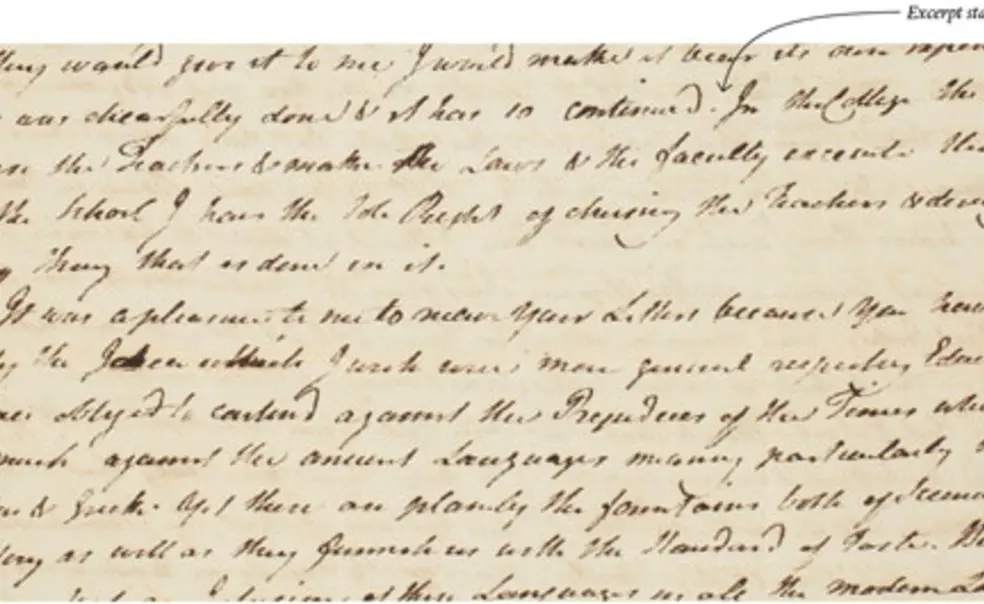 Excerpt sta
they would give it to me I would make it bear its own expen
was chearfully done & it has so continued. In the College the
the Teachers & make the Laws & the faculty execute the
the School I have the Sole Right of chusing the Teachers &
thing that is done in it.
It was a pleasure to me to receive your Letters because you have
the Ideas which I wish were more general respecting Educ
obliged to contend against the Prejudices of the Times
much against the ancient Languages meaning particularly
& Greek. Yet these are plainly the fountains both of Science
as well as they furnish us with the Standard of Taste.
of these Languages in all the modern